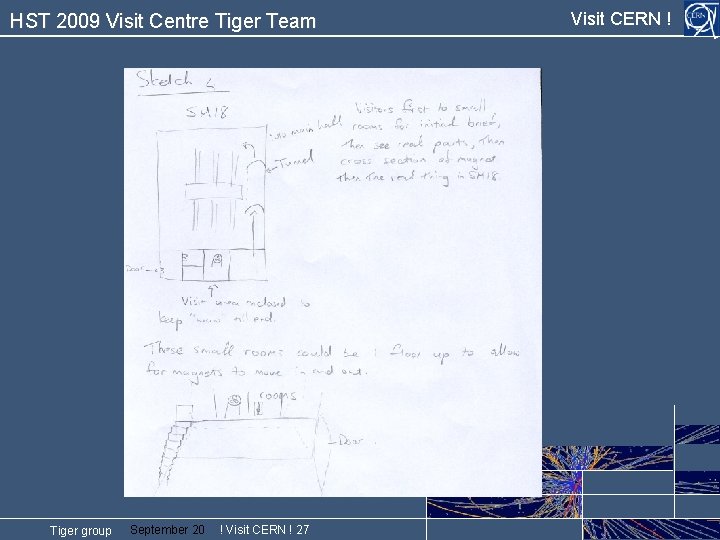 HST 2009 Visit Centre Tiger Team
Visit CERN !
CERN
Sketch 4
SM18
to main hall
Tunnel
Visitors first to small
rooms for initial brief,
then see real parts, then
cross section of magnet
then the real thing in SM18.
Door
Visit area enclosed to
keep till end.
These small rooms could be 1 floor up to allow
for magnets to move in and out.
rooms
Door
Tiger group
September 20
! Visit CERN ! 27